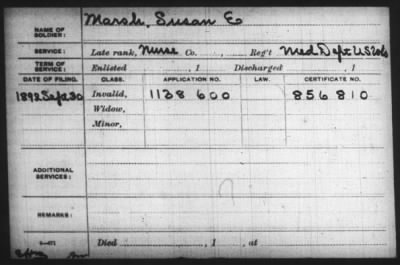 NAME OF SOLDIER: Marsh, Susan E
SERVICE: Late rank, Nurse Co. , Reg't Med Dept US Vols
TERM OF SERVICE: Enlisted , 1 Discharged , 1
DATE OF FILING. CLASS. APPLICATION NO. LAW. CERTIFICATE NO.
1892 Sept 30 Invalid, 1138 600 856 810
Widow,
Minor,
ADDITIONAL SERVICES:
REMARKS:
Died , 1 , at